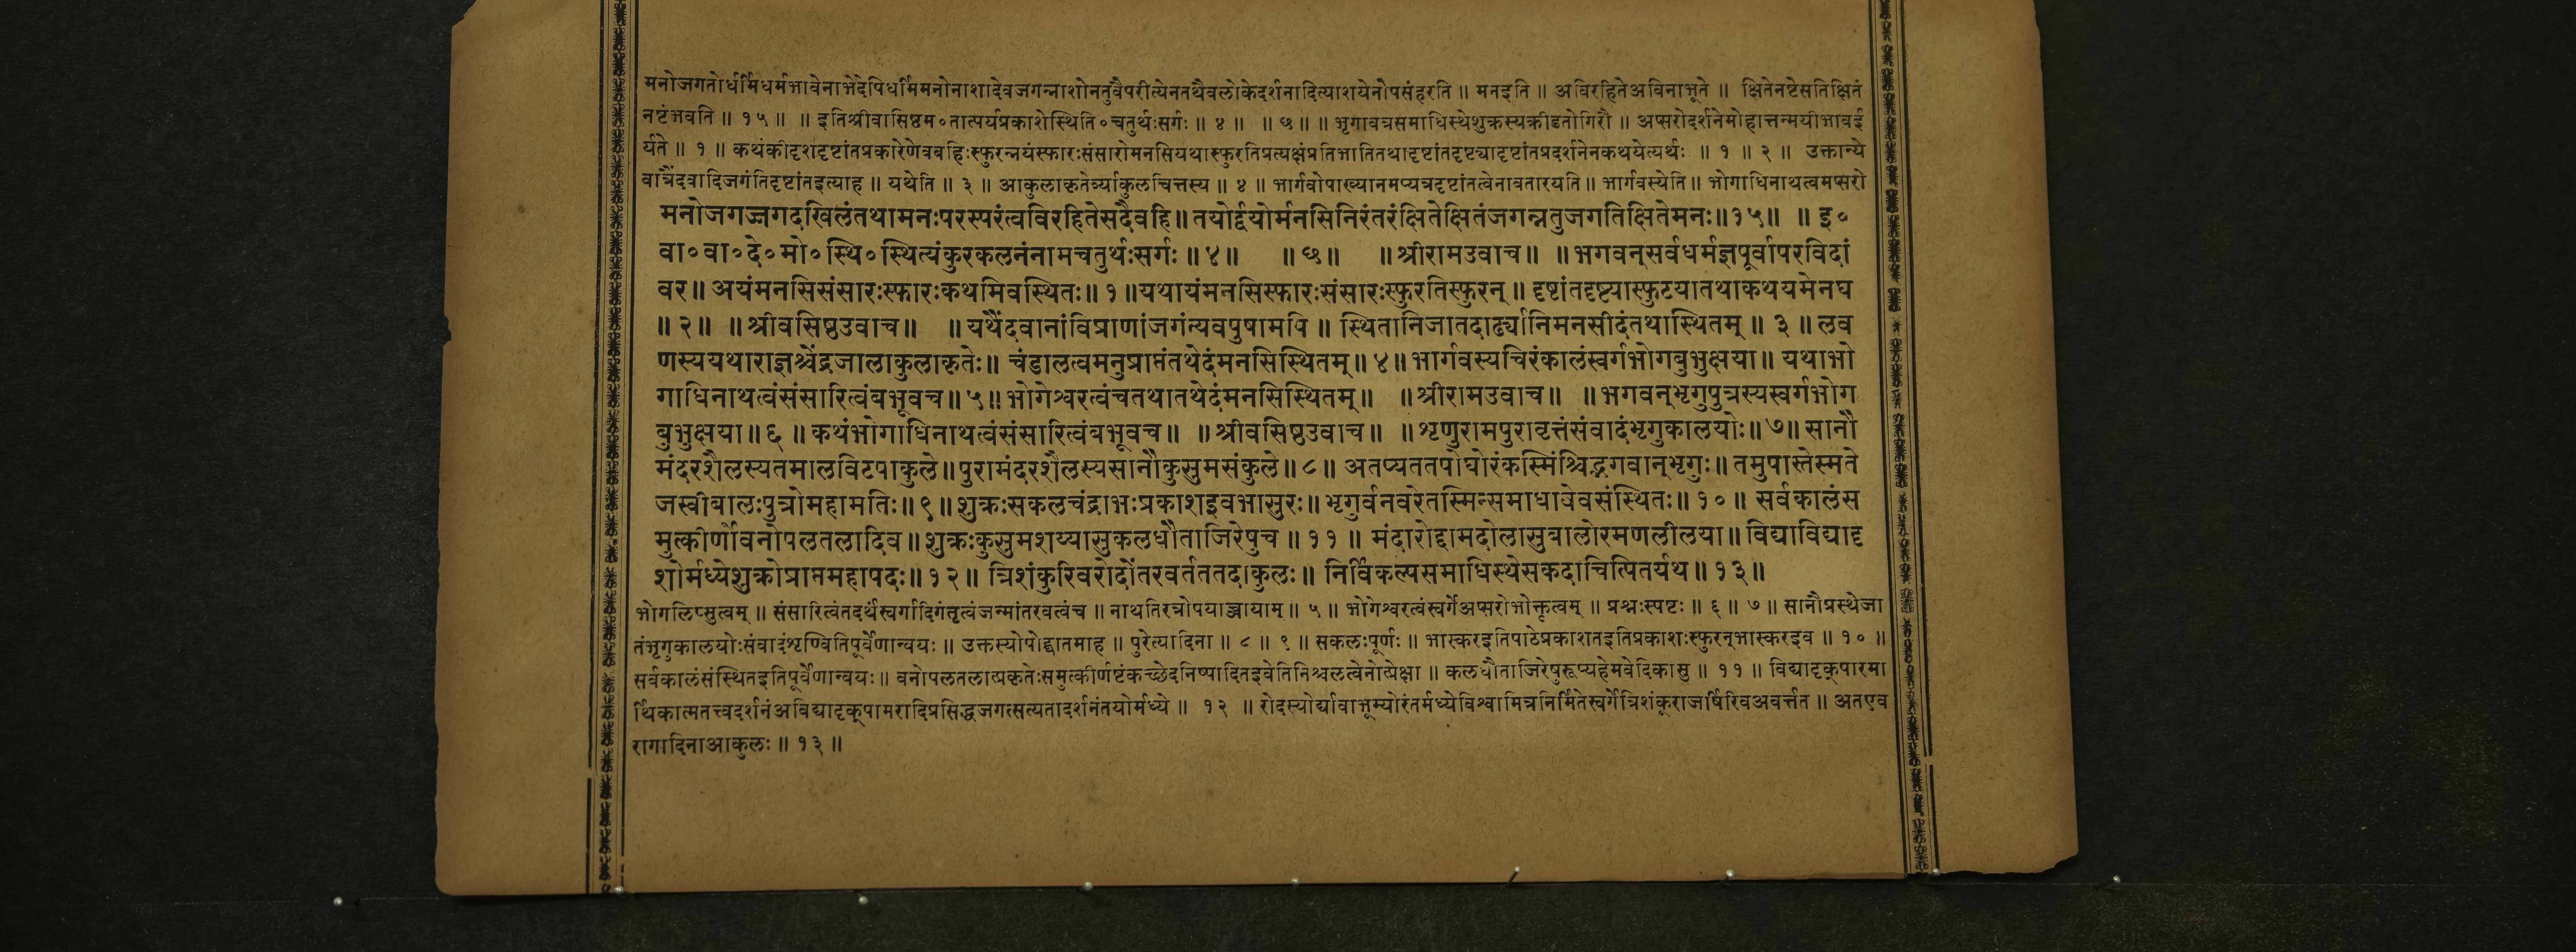 मनोजगतोर्धर्मिधर्मभावेनाभेदेपिधर्मिमनोनाशादेवजगन्नाशोनतुवैपरीत्येनतथैवलोकेदर्शनादित्याशयेनोपसंहरति ॥ मनइति ॥ अविरहितेअविनाभूते ॥ क्षितेनष्टेसतिक्षितं
नष्टंभवति ॥ १५ ॥ ॥ इतिश्रीवासिष्ठम॰तात्पर्यप्रकाशेस्थिति॰चतुर्थःसर्गः ॥ ४ ॥ ॥ छ ॥ ॥ भृगावत्रसमाधिस्थेशुक्रस्यक्रीडतोगिरौ ॥ अप्सरोदर्शनेमोहात्तन्मयीभावई
र्यते ॥ १ ॥ कथंकीदृशदृष्टांतप्रकारेणेवबहिःस्फुरन्नयंस्फारःसंसारोमनसियथास्फुरतिप्रत्यक्षंप्रतिभातितथादृष्टांतदृष्ट्यादृष्टांतप्रदर्शनेनकथयेत्यर्थः ॥ १ ॥ २ ॥ उक्तान्ये
वात्रैंदवादिजगंतिदृष्टांतइत्याह ॥ यथेति ॥ ३ ॥ आकुलाकृतेर्व्याकुलचित्तस्य ॥ ४ ॥ भार्गवोपाख्यानमप्यत्रदृष्टांतत्वेनावतारयति ॥ भार्गवस्येति ॥ भोगाधिनाथत्वमप्सरो
मनोजगज्जगदखिलंतथामनःपरस्परंत्वविरहितेसदैवहि ॥ तयोर्द्वयोर्मनसिनिरंतरंक्षितेक्षितंजगन्नतुजगतिक्षितेमनः ॥ १५ ॥ ॥ इ॰
वा॰वा॰दे॰मो॰स्थि॰स्थित्यंकुरकलनंनामचतुर्थःसर्गः ॥ ४ ॥ ॥ छ ॥ ॥ श्रीरामउवाच ॥ ॥ भगवन्सर्वधर्मज्ञपूर्वापरविदां
वर ॥ अयंमनसिसंसारःस्फारःकथमिवस्थितः ॥ १ ॥ यथायंमनसिस्फारःसंसारःस्फुरतिस्फुरन् ॥ दृष्टांतदृष्ट्यास्फुटयातथाकथयमेनघ
॥ २ ॥ ॥ श्रीवसिष्ठउवाच ॥ ॥ यथैंदवानांविप्राणांजगंत्यवपुषामपि ॥ स्थितानिजातदार्ढ्यानिमनसीदंतथास्थितम् ॥ ३ ॥ लव
णस्ययथाराज्ञश्चेंद्रजालाकुलाकृतेः ॥ चंडालत्वमनुप्राप्तंतथेदंमनसिस्थितम् ॥ ४ ॥ भार्गवस्यचिरंकालंस्वर्गभोगबुभुक्षया ॥ यथाभो
गाधिनाथत्वंसंसारित्वंबभूवच ॥ ५ ॥ भोगेश्वरत्वंचतथातथेदंमनसिस्थितम् ॥ ॥ श्रीरामउवाच ॥ ॥ भगवन्भृगुपुत्रस्यस्वर्गभोग
बुभुक्षया ॥ ६ ॥ कथंभोगाधिनाथत्वंसंसारित्वंबभूवच ॥ ॥ श्रीवसिष्ठउवाच ॥ ॥ शृणुरामपुरावृत्तंसंवादंभृगुकालयोः ॥ ७ ॥ सानौ
मंदरशैलस्यतमालविटपाकुले ॥ पुरामंदरशैलस्यसानौकुसुमसंकुले ॥ ८ ॥ अतप्यततपोघोरंकस्मिंश्चिद्भगवान्भृगुः ॥ तमुपास्तेस्मते
जस्वीबालःपुत्रोमहामतिः ॥ ९ ॥ शुक्रःसकलचंद्राभःप्रकाशइवभासुरः ॥ भृगुर्वनवरेतस्मिन्समाधावेवसंस्थितः ॥ १० ॥ सर्वकालंस
मुत्कीर्णोवनोपलतलादिव ॥ शुक्रःकुसुमशय्यासुकलधौताजिरेषुच ॥ ११ ॥ मंदारोद्दामदोलासुबालोरमणलीलया ॥ विद्याविद्यादृ
शोर्मध्येशुक्रोप्राप्तमहापदः ॥ १२ ॥ त्रिशंकुरिवरोदोंतरवर्तततदाकुलः ॥ निर्विकल्पसमाधिस्थेसकदाचित्पितर्यथ ॥ १३ ॥
भोगलिप्सुत्वम् ॥ संसारित्वंतदर्थंस्वर्गादिगंतृत्वंजन्मांतरवत्वंच ॥ नाथतिरत्रोपयाञ्चायाम् ॥ ५ ॥ भोगेश्वरत्वंस्वर्गेअप्सरोभोक्तृत्वम् ॥ प्रश्नःस्पष्टः ॥ ६ ॥ ७ ॥ सानौप्रस्थेजा
तंभृगुकालयोःसंवादंशृण्वितिपूर्वेणान्वयः ॥ उक्तस्योपोद्घातमाह ॥ पुरेत्यादिना ॥ ८ ॥ ९ ॥ सकलःपूर्णः ॥ भास्करइतिपाठेप्रकाशतइतिप्रकाशःस्फुरन्भास्करइव ॥ १० ॥
सर्वकालंसंस्थितइतिपूर्वेणान्वयः ॥ वनोपलतलात्प्रकृतेःसमुत्कीर्णष्टंकच्छेदनिष्पादितइवेतिनिश्चलत्वेनोत्प्रेक्षा ॥ कलधौताजिरेषुरूप्यहेमवेदिकासु ॥ ११ ॥ विद्यादृक्पारमा
र्थिकात्मतत्त्वदर्शनंअविद्यादृक्पामरादिप्रसिद्धजगत्सत्यतादर्शनंतयोर्मध्ये ॥ १२ ॥ रोदस्योर्द्यावाभूम्योरंतर्मध्येविश्वामित्रनिर्मितेस्वर्गेत्रिशंकूराजर्षिरिवअवर्त्तत ॥ अतएव
रागादिनाआकुलः ॥ १३ ॥